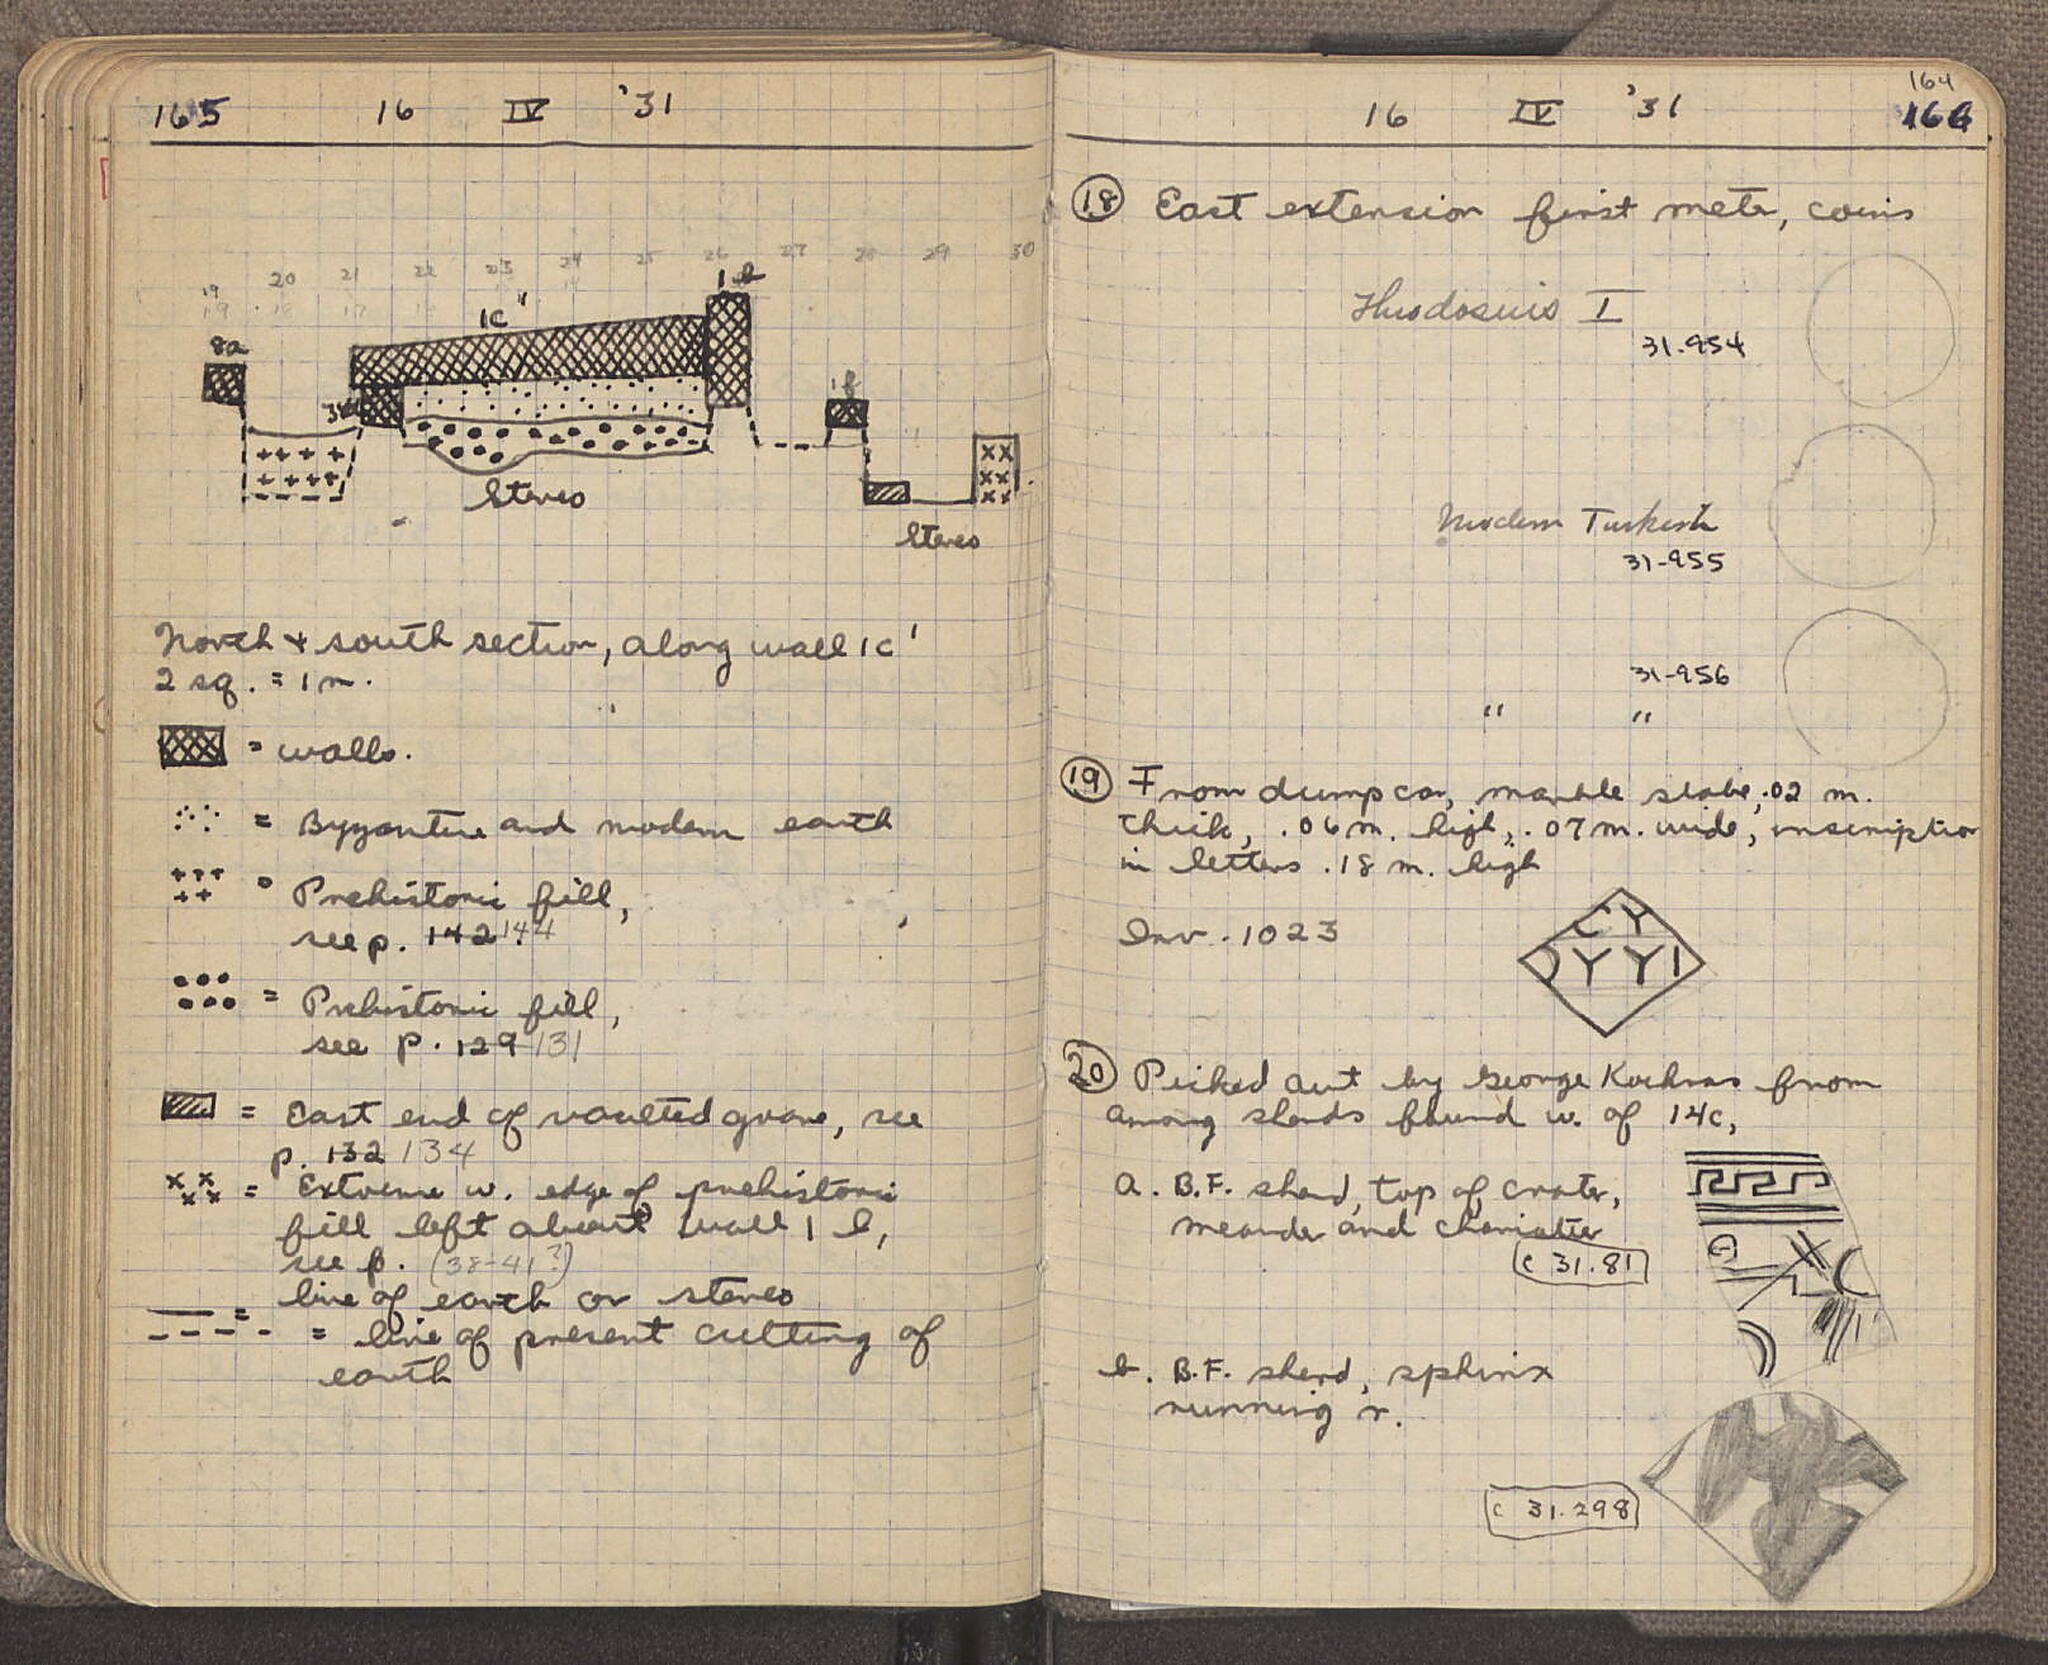 165 16 IV '31
19 20 21 22 23 24 25 26 27 28 29 30
1C'
8a
Stereo
Stereo
North & south section, along wall 1C'
2 sq. = 1 m.
= walls.
= Byzantine and modern earth
= Prehistoric fill,
see p. 142 144
= Prehistoric fill,
see p. 129 131
= East end of vaulted grave, see
p. 132 134
= Extreme w. edge of prehistoric
fill left about wall 1 l,
see p. (38-41?)
= line of earth or stereo
= line of present cutting of
earth
164
16 IV '31 166
18 East extension first meter, coins
Theodosius I
31-954
Modern Turkish
31-955
31-956
" "
19 From dump car, marble slab, .02 m.
thick, .06 m. high, .07 m. wide, inscription
in letters .18 m. high
Inv. 1023
CY
ΟΥΥΙ
20 Picked out by George Kachros from
among sherds found w. of 14c,
a. B.F. sherd, top of crater,
meander and charioteer
C 31.81
b. B.F. sherd, sphinx
running r.
C 31.298